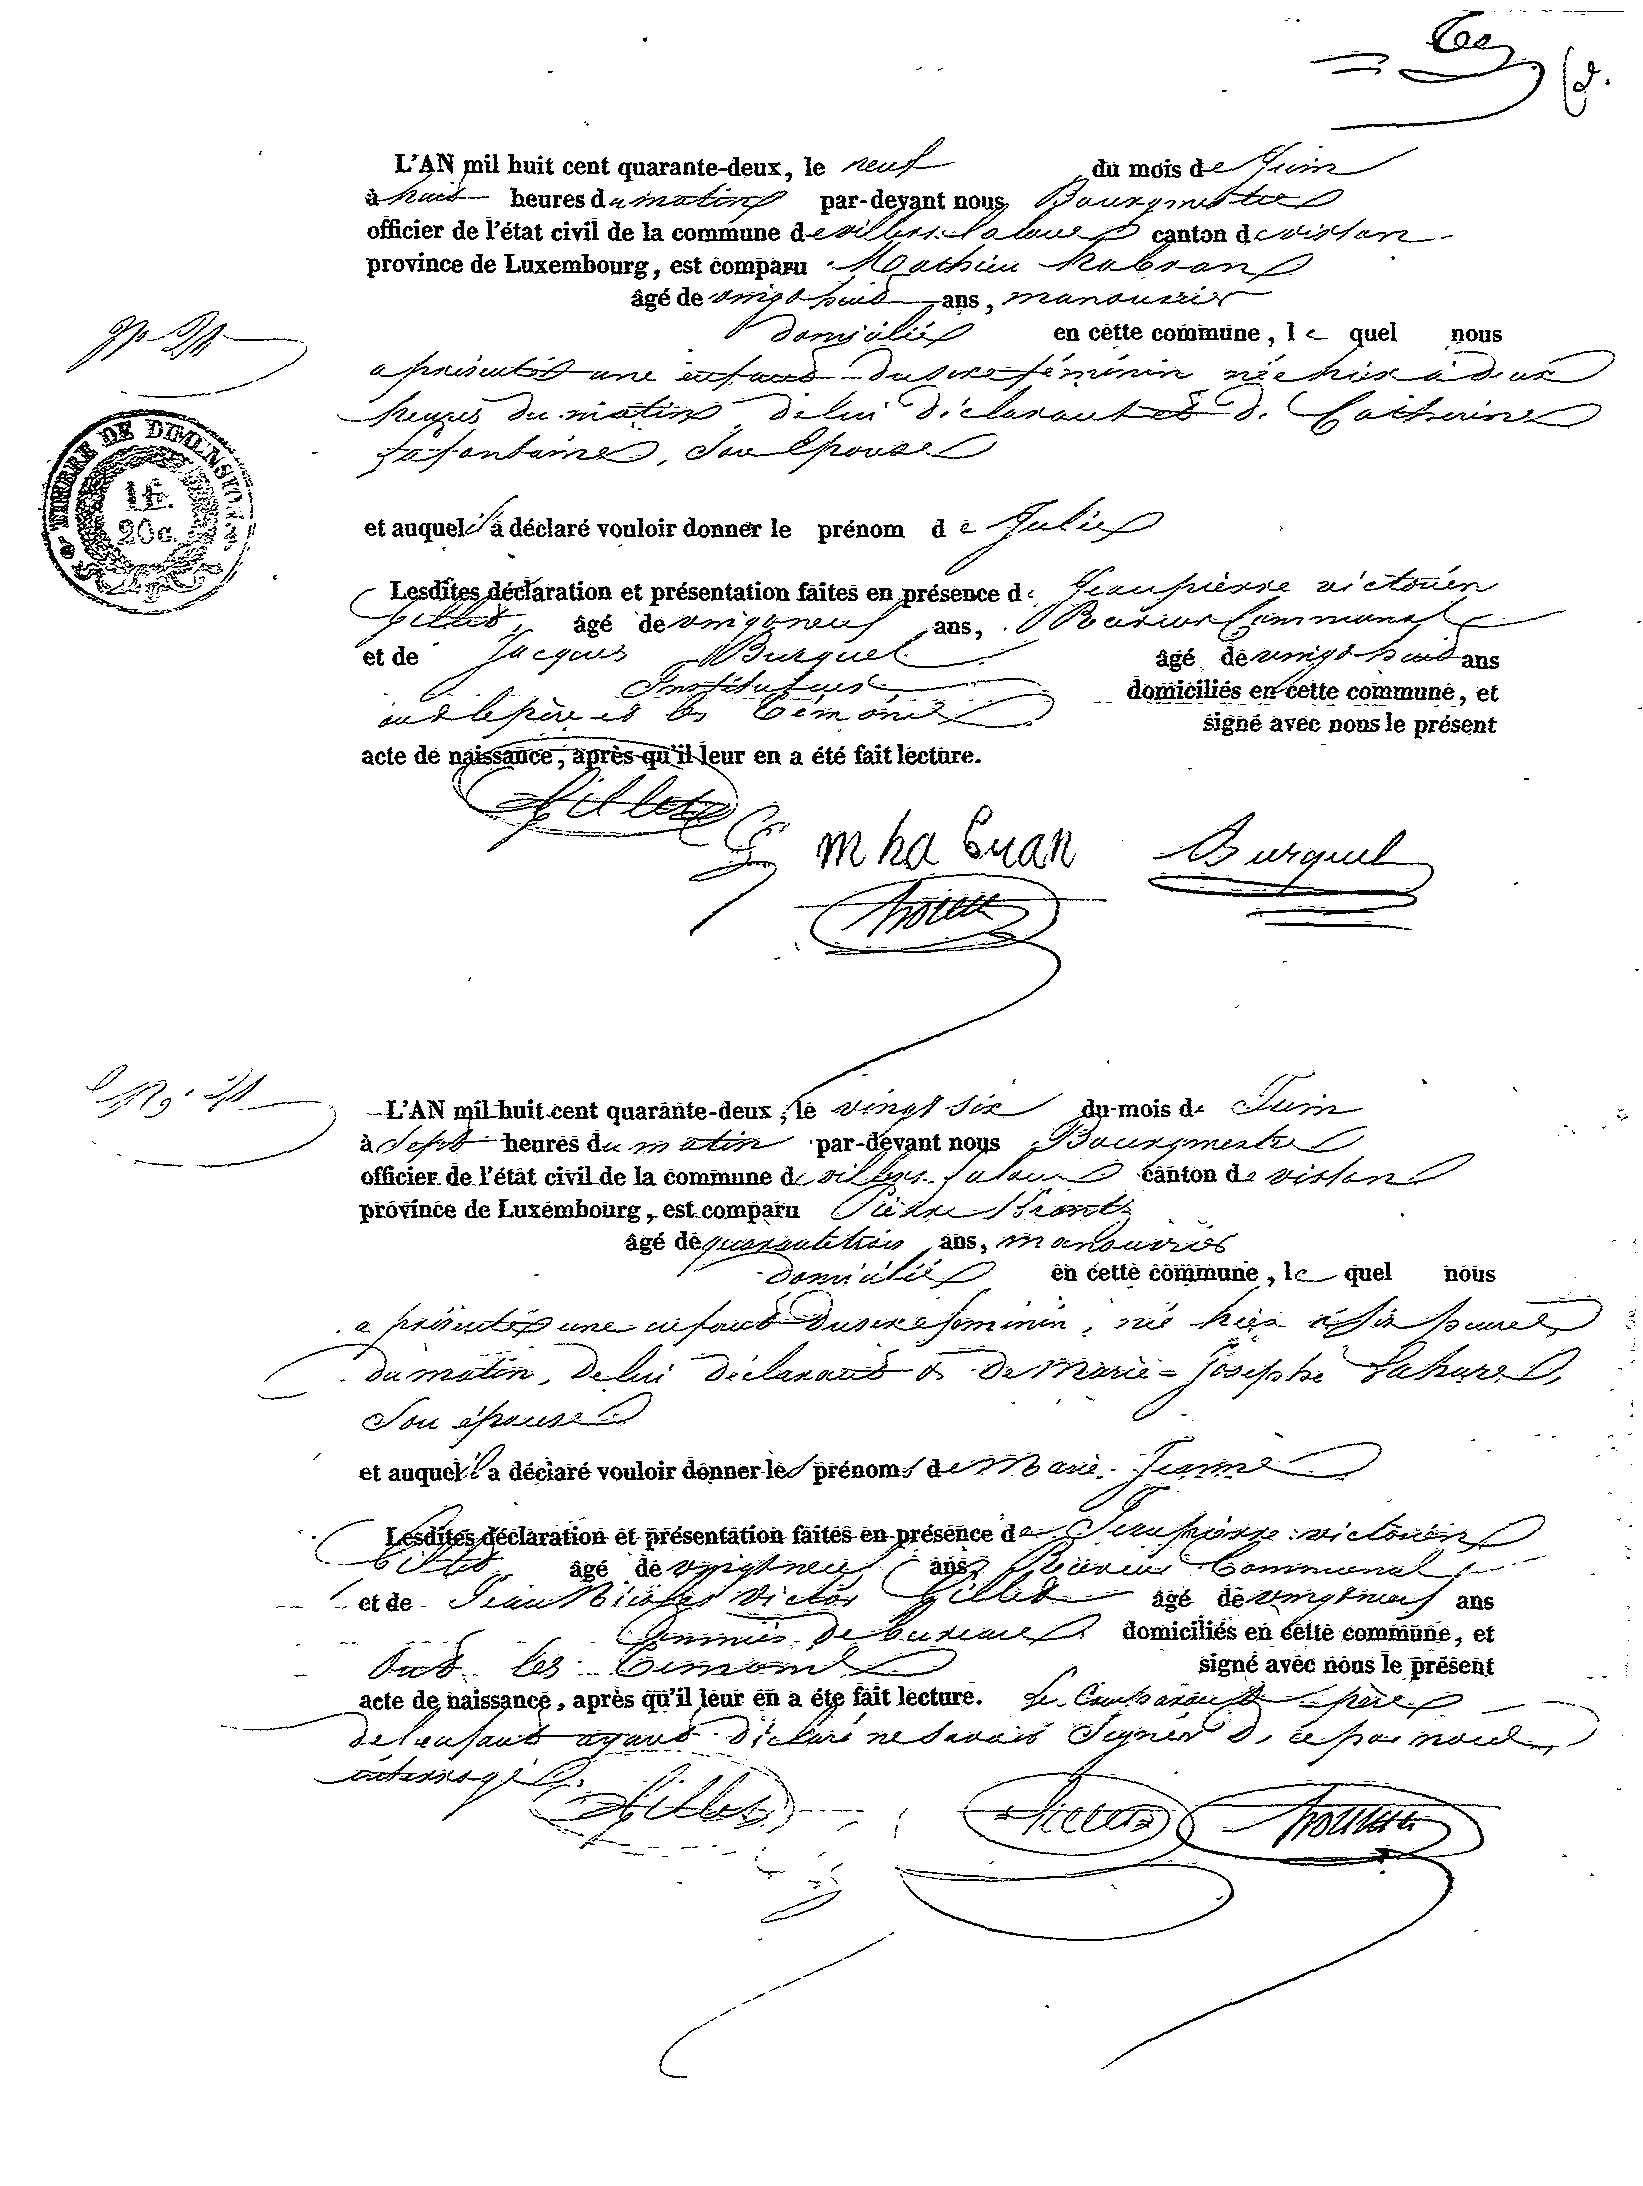 L'AN mil huit cent quarante-deux, le neuf du mois de Juin
à huit heures du matin par-devant nous Bourgmestre
officier de l'état civil de la commune de villers la loue canton de virton
province de Luxembourg, est comparu Mathieu habran
âgé de vingt huit ans, manouvrier
domicilié en cette commune, le quel nous
a présenté une enfant du sexe féminin née hier à deux
heures du matin de lui déclarant et de Catherine
Lafontaine, son épouse
TIMBRE DE DIMENSION
1 fr.
20 c.
et auquel il a déclaré vouloir donner le prénom de Julie
Lesdites déclaration et présentation faites en présence de Jean pierre victorien
Gillet, âgé de vingt neuf ans, Receveur Communal
et de Jacques Burquel âgé de vingt huit ans
Instituteur domiciliés en cette commune, et
ont le père et les témoins signé avec nous le présent
acte de naissance, après qu'il leur en a été fait lecture.
Gillet
m ha bran Burquel
L'AN mil huit cent quarante-deux, le vingt six du mois de Juin
à Sept heures du matin par-devant nous Bourgmestre
officier de l'état civil de la commune de villers la loue canton de virton
province de Luxembourg, est comparu Pierre
âgé de quarante trois ans, manouvrier
domicilié en cette commune, le quel nous
a présenté une enfant du sexe féminin, née hier à six heures
du matin, de lui déclarant et de Marie-Josephe Lahure,
Son épouse
et auquel il a déclaré vouloir donner les prénoms de Marie-Jeanne
Lesdites déclaration et présentation faites en présence de Jean pierre victorien
Gillet âgé de vingt neuf ans, Receveur Communal
et de Jean Nicolas Victor Gillet âgé de vingt neuf ans
Commis de bureau domiciliés en cette commune, et
Ont les témoins signé avec nous le présent
acte de naissance, après qu'il leur en a été fait lecture. Le Comparant père
de l'enfant ayant déclaré ne savoir Signer de ce par nous
interrogé.
Gillet